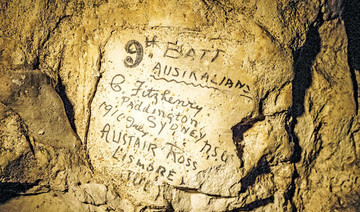 9th BATT
AUSTRALIANS
G. Fitzhenry,
Paddington
SYDNEY N.S.W
1916 July
ALISTAIR ROSS
LISMORE
JULY